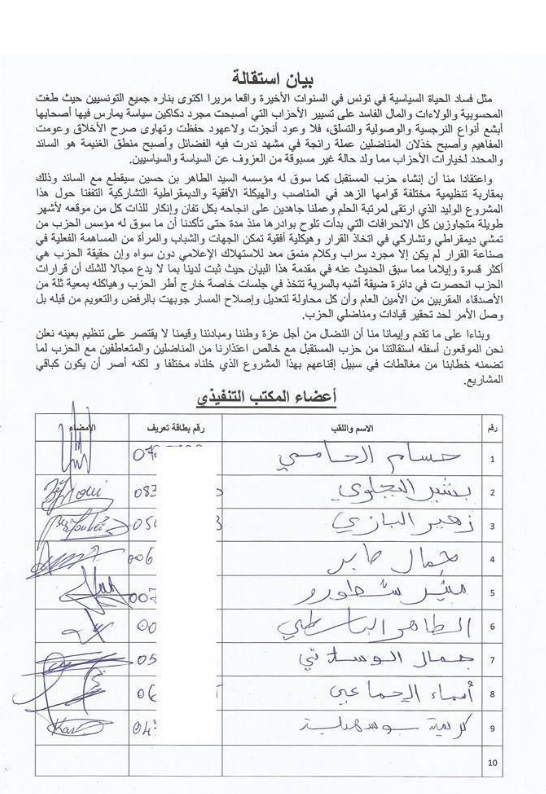 بيان استقالة
مثل فساد الحياة السياسية في تونس في السنوات الأخيرة واقعا مريرا اكتوى بناره جميع التونسيين حيث طغت
المحسوبية والولاءات والمال الفاسد على تسيير الأحزاب التي أصبحت مجرد دكاكين سياسة يمارس فيها أصحابها
أبشع أنواع النرجسية والوصولية والتسلق، فلا وعود أنجزت ولا عهود حفظت وتهاوى صرح الأخلاق وعومت
المفاهيم وأصبح خذلان المناضلين عملة رائجة في مشهد ندرت فيه الفضائل وأصبح منطق الغنيمة هو السائد
والمحدد لخيارات الأحزاب مما ولد حالة غير مسبوقة من العزوف عن السياسة والسياسيين.
واعتقادا منا أن إنشاء حزب المستقبل كما سوق له مؤسسه السيد الطاهر بن حسين سيقطع مع السائد وذلك
بمقاربة تنظيمية مختلفة قوامها الزهد في المناصب والهيكلة الأفقية والديمقراطية التشاركية التففنا حول هذا
المشروع الوليد الذي ارتقى لمرتبة الحلم وعملنا جاهدين على انجاحه بكل تفان وإنكار للذات كل من موقعه لأشهر
طويلة متجاوزين كل الانحرافات التي بدأت تلوح بوادرها منذ مدة حتى تأكدنا أن ما سوق له مؤسس الحزب من
تمشي ديمقراطي وتشاركي في اتخاذ القرار وهيكلية أفقية تمكن الجهات والشباب والمرأة من المساهمة الفعلية في
صناعة القرار لم يكن إلا مجرد سراب وكلام منمق معد للاستهلاك الإعلامي دون سواه وإن حقيقة الحزب هي
أكثر قسوة وإيلاما مما سبق الحديث عنه في مقدمة هذا البيان حيث ثبت لدينا بما لا يدع مجالا للشك أن قرارات
الحزب انحصرت في دائرة ضيقة أشبه بالسرية تتخذ في جلسات خاصة خارج أطر الحزب وهياكله بمعية ثلة من
الأصدقاء المقربين من الأمين العام وأن كل محاولة لتعديل وإصلاح المسار جوبهت بالرفض والتعويم من قبله بل
وصل الأمر لحد تحقير قيادات ومناضلي الحزب.
وبناءا على ما تقدم وإيمانا منا أن النضال من أجل عزة وطننا ومبادئنا وقيمنا لا يقتصر على تنظيم بعينه نعلن
نحن الموقعون أسفله استقالتنا من حزب المستقبل مع خالص اعتذارنا من المناضلين والمتعاطفين مع الحزب لما
تضمنه خطابنا من مغالطات في سبيل إقناعهم بهذا المشروع الذي خلناه مختلفا و لكنه أصر أن يكون كباقي
المشاريع.
أعضاء المكتب التنفيذي
رقم الاسم واللقب رقم بطاقة تعريف الإمضاء
1 حسام الحامي 07
2 بشير 083
3 زهير البازي 050
4 جمال صابر 006
5 منير شطورو 007
6 الطاهر الباسطي 00
7 جمال الوسلاتي 05
8 أسماء 06
9 كريمة بوسهيلة 04
10